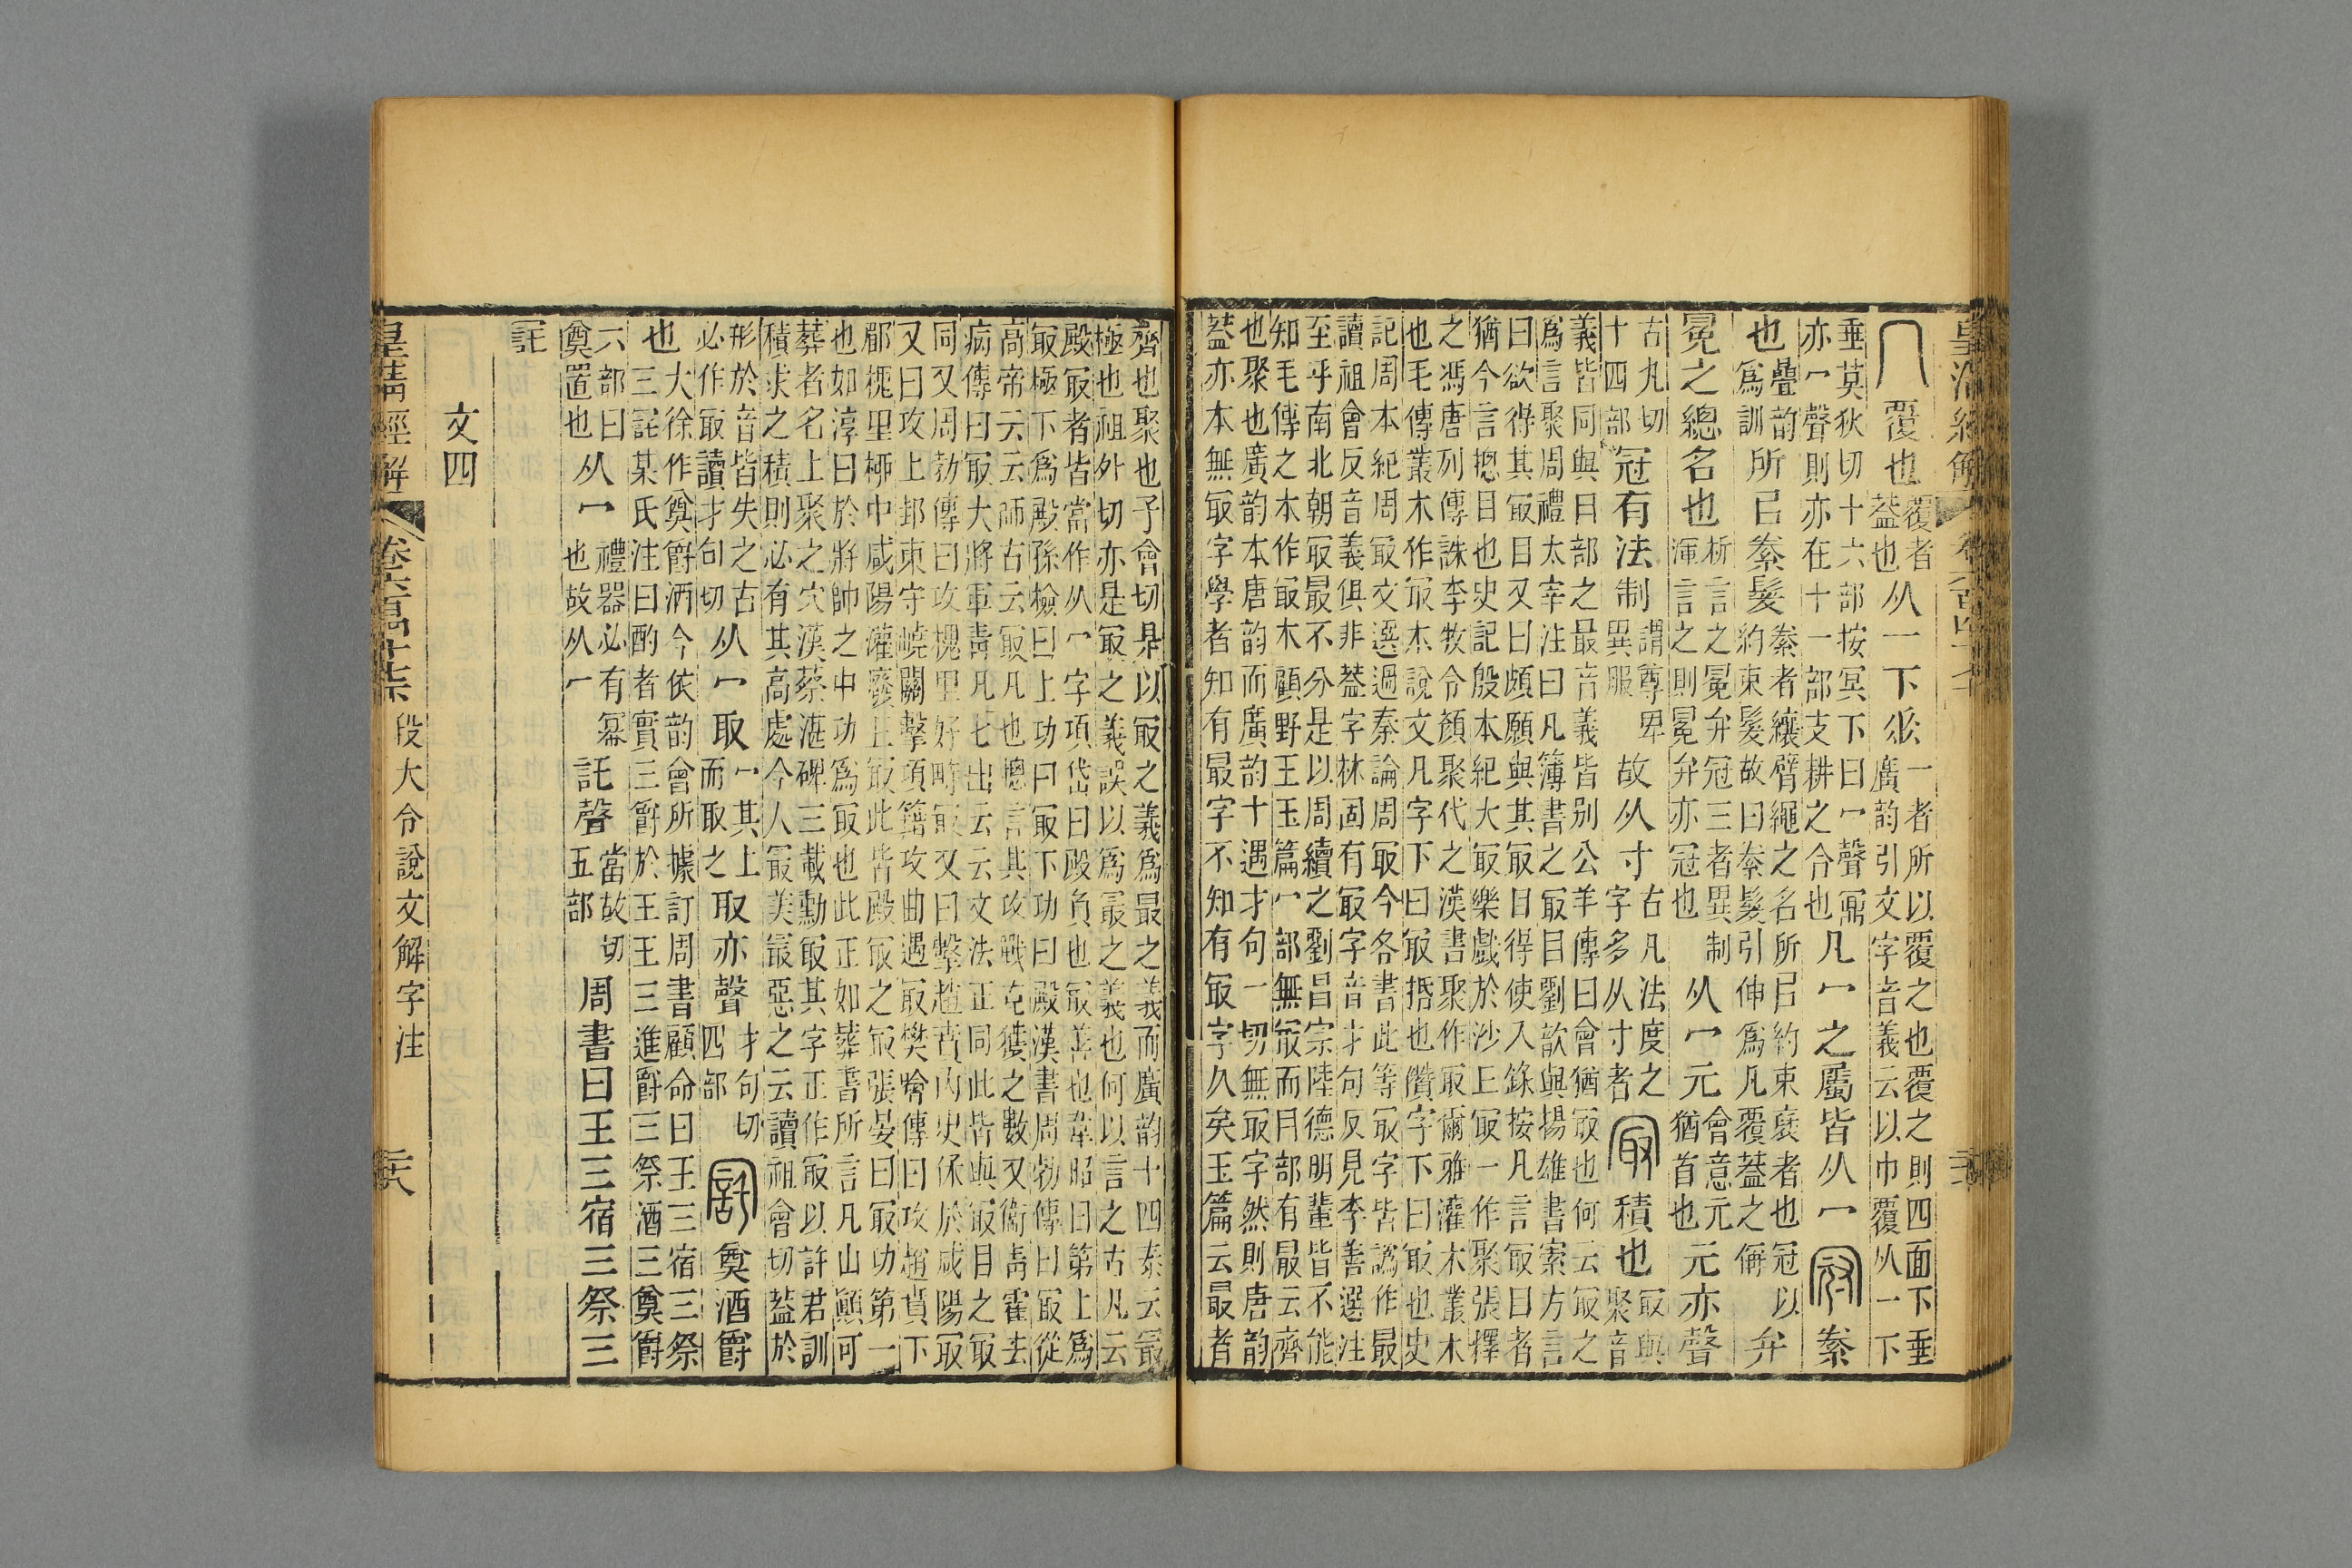 冖覆也覆者葢也从一下𠂹一者所以覆之也覆之則四面下垂廣韵引文字音義云以巾覆从一下
垂莫狄切十六部按冥下曰冖聲鼏亦冖聲則亦在十一部支耕之合也凡冖之屬皆从冖冠絭
也疊韵爲訓所㠯絭髮絭者纕臂繩之名所㠯約束衺者也冠以約束髮故曰絭髮引伸爲凡覆葢之偁弁
冕之總名也析言之冕弁冠三者異制渾言之則冕弁亦冠也从冖元會意元猶首也元亦聲
古丸切十四部冠有法制謂尊卑異服故从寸古凡法度之字多从寸者冣積也冣與聚音
義皆同與冃部之最音義皆别公羊傳曰會猶冣也何云冣之爲言聚周禮太宰注曰凡簿書之冣目劉歆與揚雄書索方言
曰欲得其冣目又曰頗願與其冣目得使入錄按凡言冣目者猶今言揔目也史記殷本紀大冣樂戲於沙丘冣一作聚張釋
之馮唐列傳誅李牧令顏聚代之漢書聚作冣爾雅灌木叢木也毛傳叢木作冣木說文凡字下曰冣括也儹字下曰冣也史
記周本紀周冣文選過秦論周冣今各書此等冣字皆譌作最讀祖會反音義俱非葢字林固有冣字音才句反見李善選注
至乎南北朝冣最不分是以周續之劉昌宗陸德明輩皆不能知毛傳之木作冣木顧野王玉篇冖部無冣而冃部有最云齊
也聚也廣韵本唐韵而廣韵十遇才句一切無冣字然則唐韵葢亦本無冣字學者知有最字不知有冣字久矣玉篇云最者
齊也聚也子會切是以冣之義爲最之義而廣韵十四泰云最極也祖外切亦是冣之義誤以爲最之義也何以言之古凡云
殿冣者皆當作从冖字項岱曰殿負也冣善也韋昭曰第上爲冣極下爲殿孫檢曰上功曰冣下功曰殿漢書周勃傳曰冣從
高帝云云師古云冣凡也揔言其攻戰克獲之數又衞靑霍去病傳曰冣大將軍靑凡七出云云文法正同此皆與冣目之冣
同又周勃傳曰攻槐里好畤冣又曰擊趙賁内史保於咸陽冣又曰攻上邽東守嶢關擊項籍攻曲遇冣樊噲傳曰攻趙賁下
郿槐里桺中咸陽灌廢丘冣此皆殿冣之冣張晏曰冣功第一也如淳曰於將帥之中功爲冣也此正如葬書所言凡山顚可
葬者名上聚之穴漢蔡湛碑三載勳冣其字正作冣以許君訓積求之積則必有其高處今人冣美冣惡之云讀祖會切葢於
形於音皆失之古必作冣讀才句切从冖取冖其上而取之取亦聲才句切四部𠖨奠酒爵
也大徐作奠爵酒今依韵會所據訂周書顧命曰王三宿三祭三𠖨某氏注曰酌者實三爵於王王三進爵三祭酒三奠爵
六部曰奠置也从冖禮器必有冪也故从冖託聲當故切五部周書曰王三宿三祭三
𠖨
文四
皇淸經解 卷六百四十七 段大令說文解字注